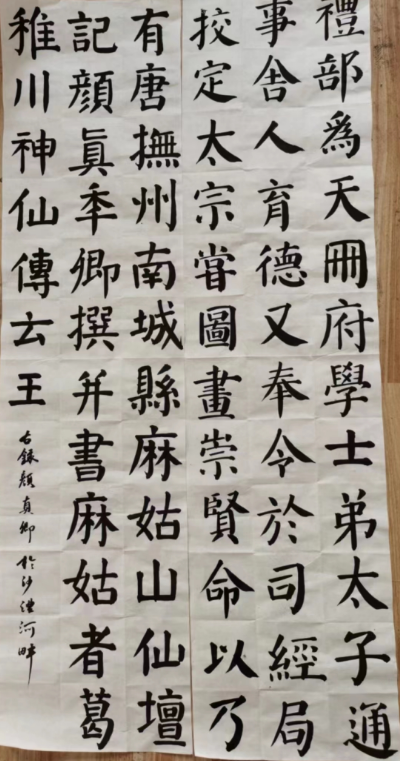 禮部爲天冊府學士弟太子通
事舍人育德又奉令於司經局
挍定太宗嘗圖畫崇賢命以乃
有唐撫州南城縣麻姑山仙壇
記顏眞季卿撰并書麻姑者葛
稚川神仙傳云王
右錄顏真卿 於沙澧河畔